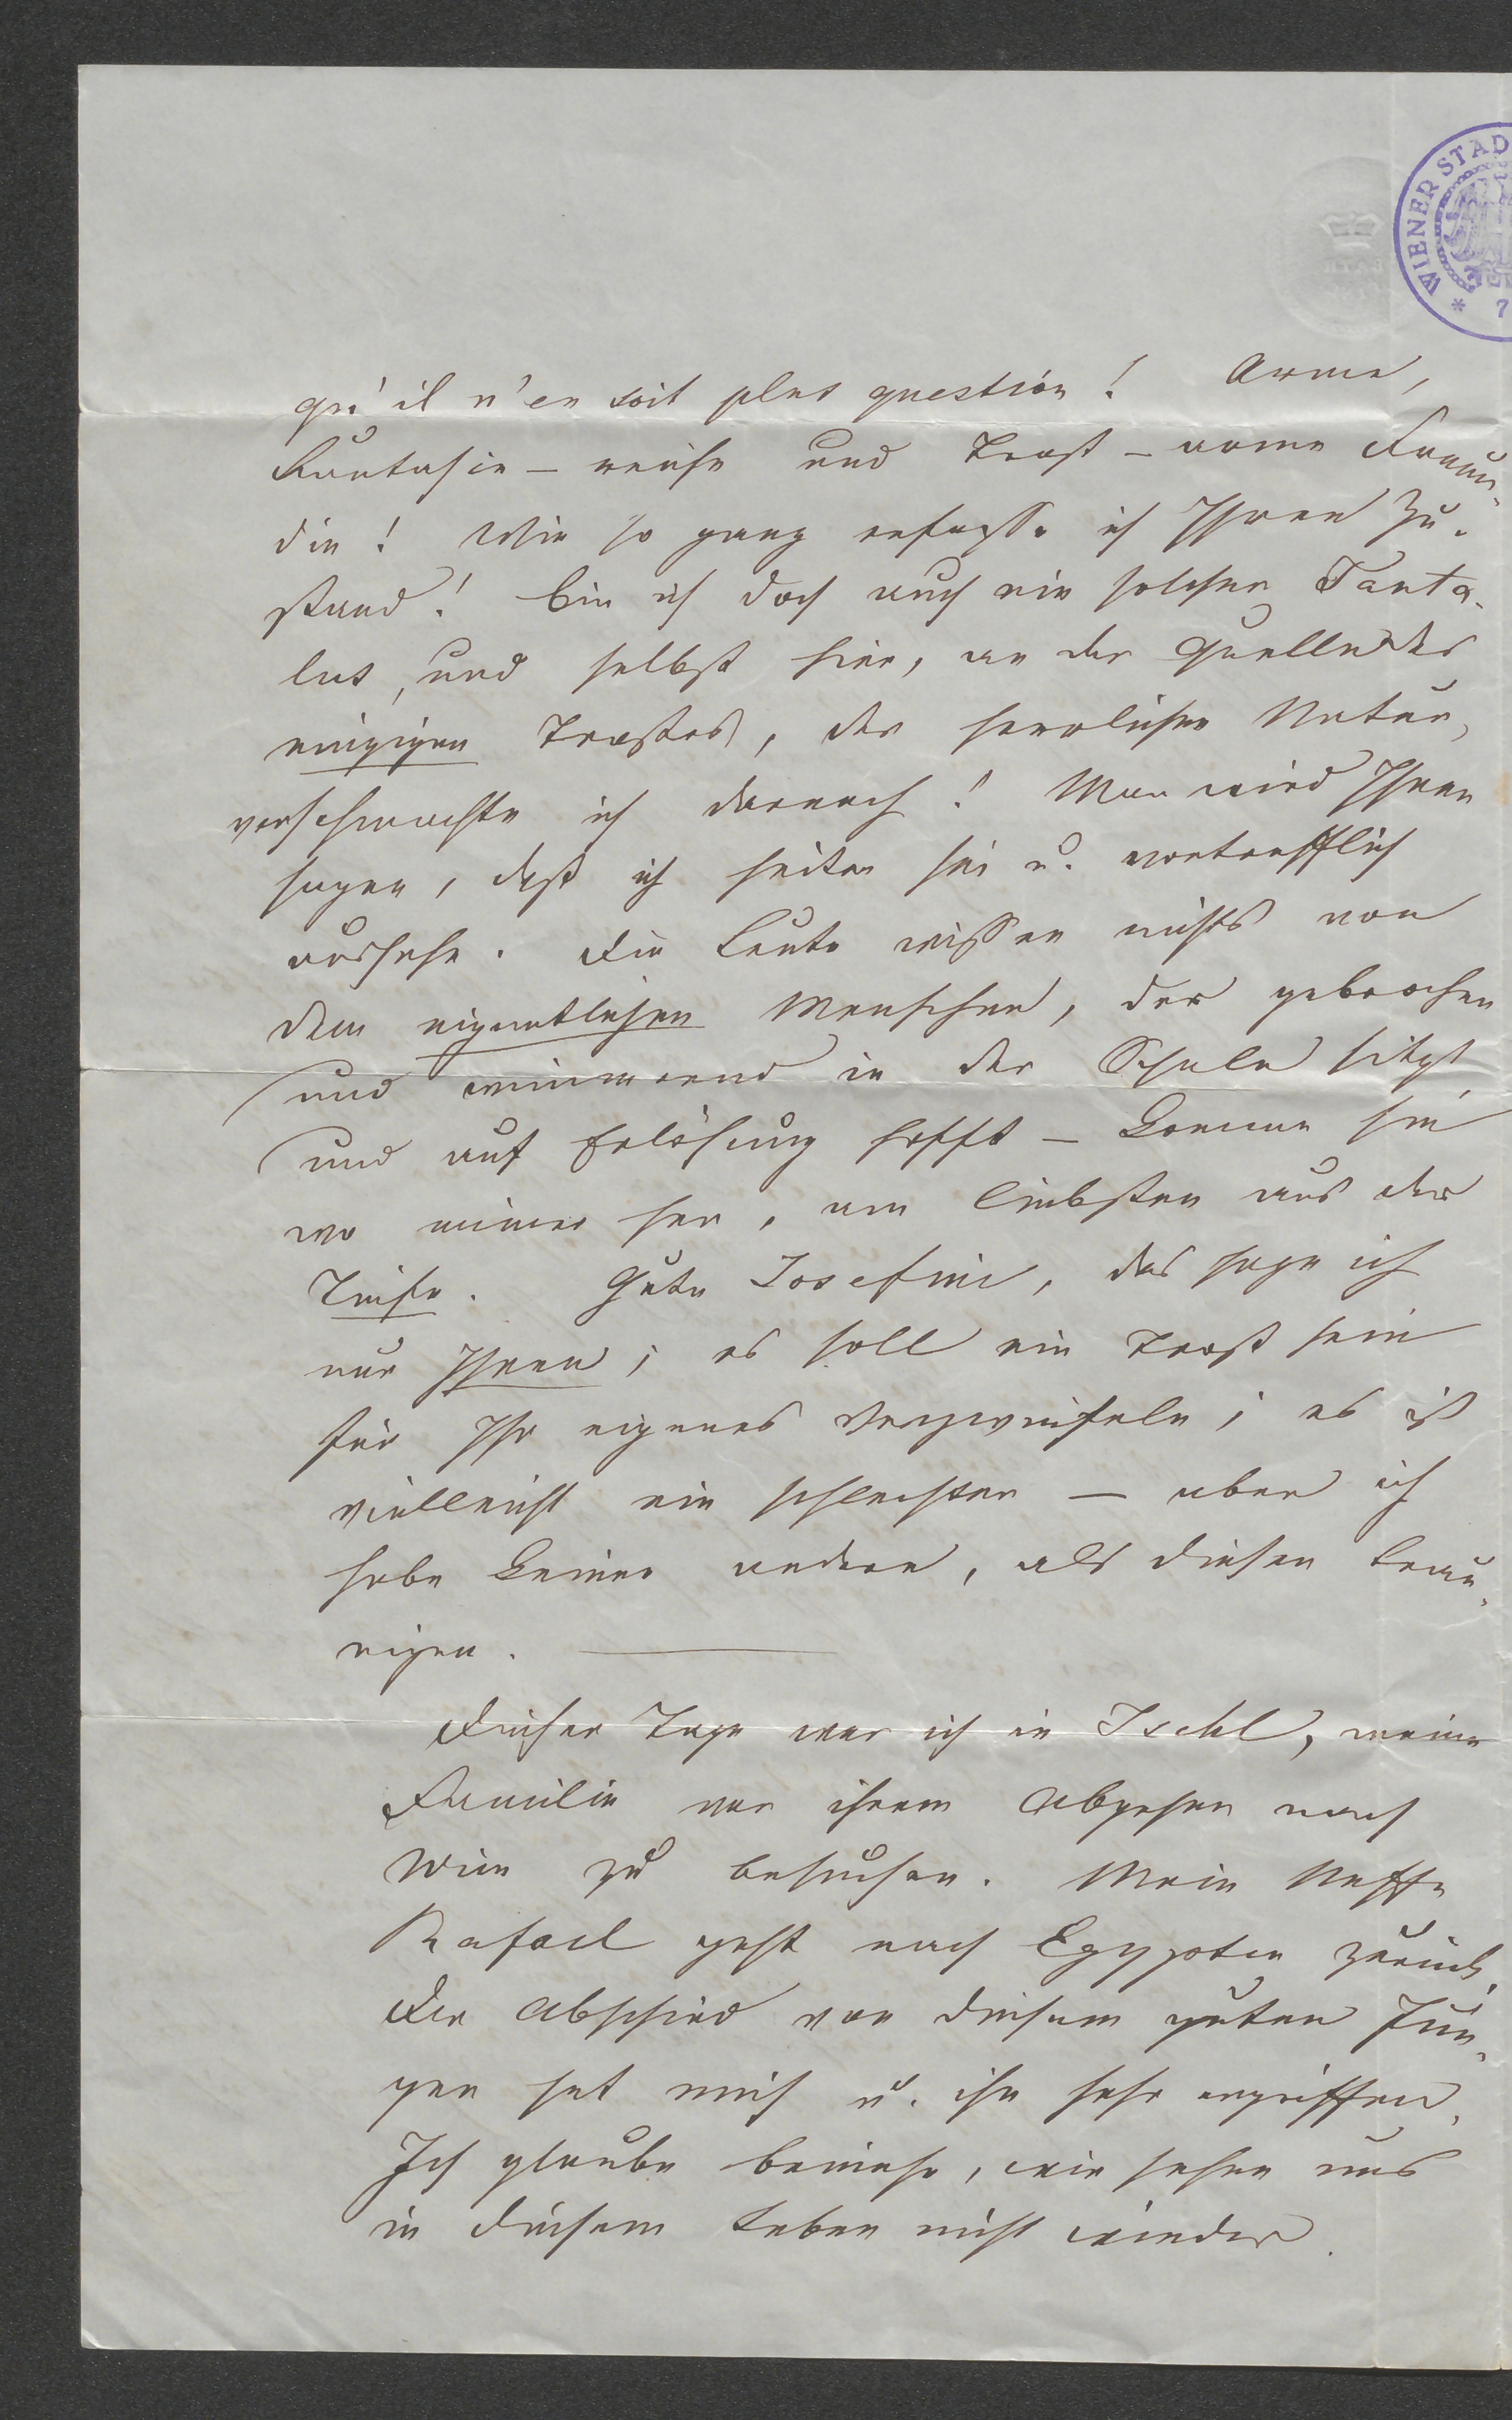 WIENER STAD
* 7
qu'il n'en soit plus question! Arme,
Fantasie-reiche und Trost-arme Freun-
din! Wie so ganz erfasse ich Ihren Zu-
stand! Bin ich doch auch ein solcher Tanta-
lus, und selbst hier, an der Quelle des
einzigen Trostes, der herrlichen Natur,
verschmachte ich darnach! Man wird Ihnen
sagen, daß ich heiter sei u. vortrefflich
aussehe. Die Leute wissen nichts von
dem eigentlichen Menschen, der gebrochen
und wimmernd in der Schale sitzt
und auf Erlösung hofft – komme sie
wo immer her, am liebsten aus der
Teufe. Gute Josefine, das sage ich
nur Ihnen; es soll ein Trost sein
für Ihr eigenes Verzweifeln; es ist
vielleicht ein schlechter – aber ich
habe keinen andern, als diesen trau-
rigen. —
Dieser Tage war ich in Ischl, meine
Familie vor ihrem Abgehen nach
Wien zu besuchen. Mein Neffe
Rafael geht nach Egypten zurück.
Der Abschied von diesem guten Jun-
gen hat mich u. ihn sehr ergriffen.
Ich glaube beinahe, wir sehen uns
in diesem Leben nicht wieder.